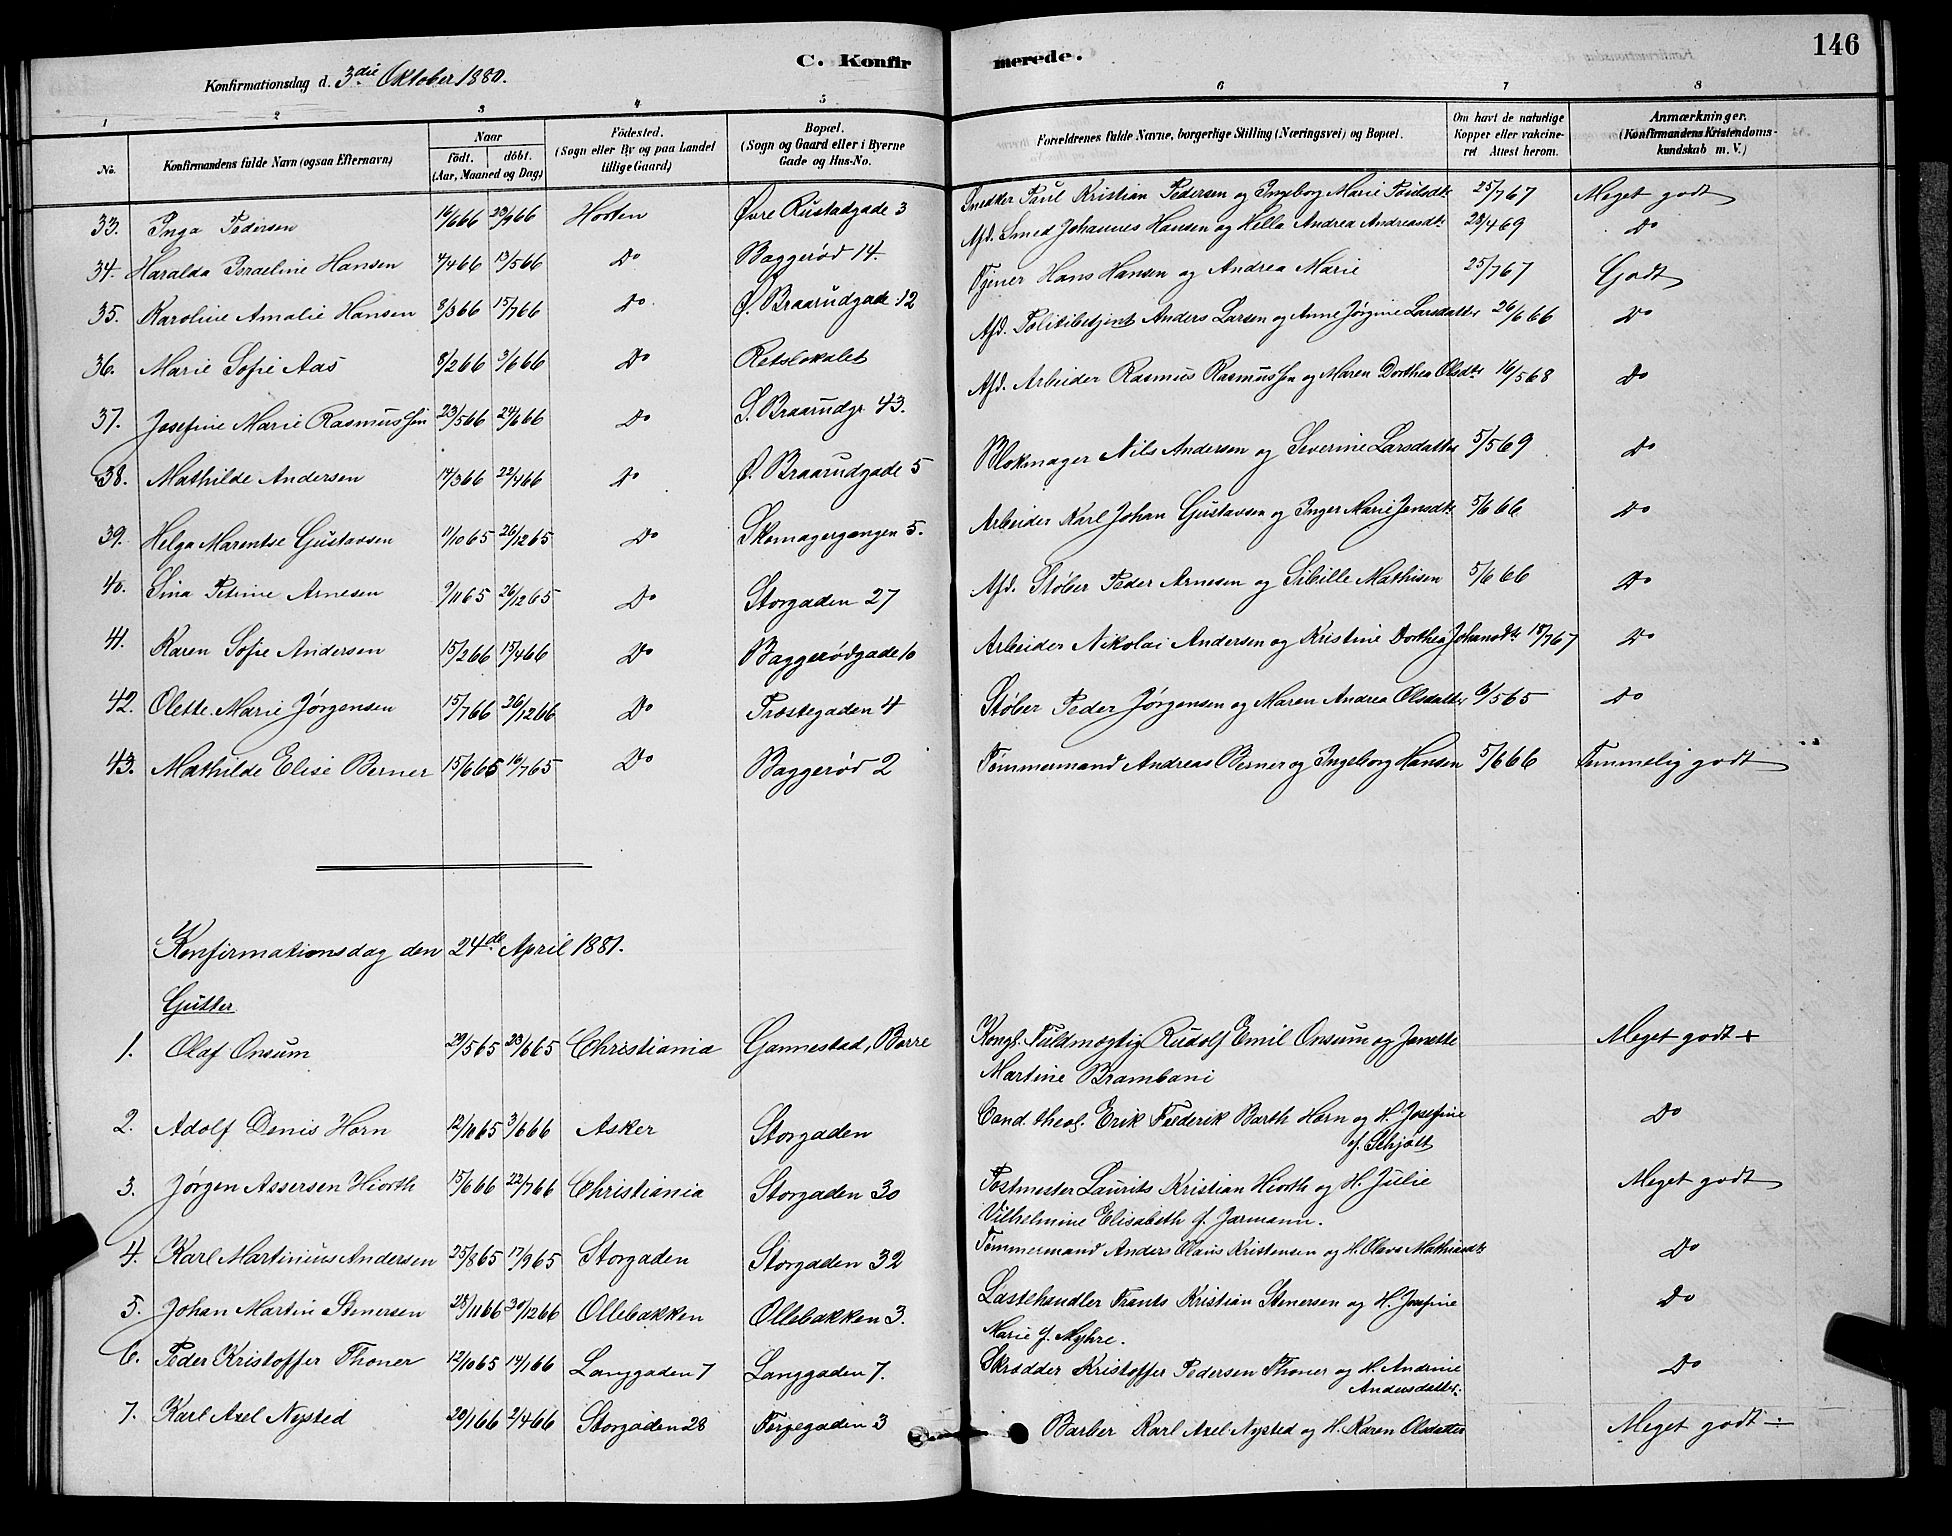 C. Konfirmerede.
146
Konfirmationsdag d. 3die Oktober 1880.
1 2 3 4 5 6 7 8
No. Konfirmandens fulde Navn (ogsaa Efternavn) Naar födt. döbt. (Aar, Maaned og Dag) Födested. (Sogn eller By og paa Landet tillige Gaard) Bopæl. (Sogn og Gaard eller i Byerne Gade og Hus-No. Forældrenes fulde Navne, borgerlige Stilling (Næringsvei) og Bopæl. Om havt de naturlige Kopper eller vakcineret Attest herom. Anmærkninger. (Konfirmandens Kristendomskundskab m. V.)
33. Inga Pedersen 16/6 66 23/9 66 Horten Øvre Rustadgade 3 Snedker Paul Kristian Pedersen og Ingeborg Marie Paulsdtr 25/7 67 Meget godt
34. Haralda Israeline Hansen 4/4 66 13/5 66 Do Baggerød 14. Afd. Smed Johannes Hansen og Hella Andrea Andreasdtr 28/4 69 Do
35. Karoline Amalie Hansen 8/3 66 15/7 66 Do Ø. Braarudgade 12 Tjener Hans Hansen og Andrea Marie 25/7 67 Godt
36. Marie Sofie Aas 8/2 66 3/6 66 Do Retslokalet Afd. Politibetjent Anders Larsen og Anne Jørgine Larsdatter 26/6 66 Do
37. Josefine Marie Rasmussen 23/5 66 24/6 66 Do S. Braarudgr. 43. Afd. Arbeider Rasmus Rasmussen og Maren Dorthea Olsdtr 16/5 68 Do
38. Mathilde Andersen 14/3 66 22/4 66 Do Ø. Braarudgade 5 Blokmager Nils Andersen og Severine Larsdatter 5/5 69 Do
39. Helga Marentse Gustavsen 11/10 65 26/12 65 Do Skomagergangen 5. Arbeider Karl Johan Gustavsen og Inger Marie Jensdtr 5/6 66 Do
40. Sina Petrine Arnesen 9/11 65 26/12 65 Do Storgaden 27 Afd. Støber Peder Arnesen og Sibille Mathisen 5/6 66 Do
41. Karen Sofie Andersen 15/2 66 15/4 66 Do Baggerødgade 10 Arbeider Nikolai Andersen og Kristine Dorthea Johansdtr 18/7 67 Do
42. Olette Marie Jørgensen 15/7 66 26/12 66 Do Trostegaden 4 Støber Peder Jørgensen og Maren Andrea Olsdatter 6/5 65 Do
43. Mathilde Elise Berner 15/6 65 16/7 65 Do Baggerød 2 Tømmermand Andreas Berner og Ingeborg Hansen 5/6 66 Temmelig godt
Konfirmationsdag den 24de April 1881.
Gutter
1. Olaf Onsum 29/5 65 28/6 65 Christiania Gannestad, Borre Kongl. Fuldmægtig Rudolf Emil Onsum og Janette Meget godt +
Martine Brambani
2. Adolf Denis Horn 12/11 65 3/6 66 Asker Storgaden Cand. theol. Erik Frederik Barth Horn og H. Josefine Do
f. Schjølt
3. Jørgen Assersen Hiorth 15/6 66 22/7 66 Christiania Storgaden 30 Postmester Laurits Kristian Hiorth og H. Julie Meget godt
Vilhelmine Elisabeth f. Jarmann.
4. Karl Martinius Andersen 25/8 65 17/9 65 Storgaden Storgaden 32 Tømmermand Anders Olaus Kristensen og H. Olava Do
5. Johan Martin Stenersen 28/11 66 30/12 66 Ollebakken Ollebakken 3. Lastehandler Frants Kristian Stenersen og H. Josefine Do
Marie f. Myhre.
6. Peder Kristoffer Thoner 12/10 65 14/1 66 Langgaden 7 Langgaden 7. Skrædder Kristoffer Pedersen Thoner og H. Andrine Do
Andersdatter.
7. Karl Axel Nysted 20/1 66 2/4 66 Storgaden 28 Torvegaden 3 Barber Karl Axel Nysted og H. Karen Olsdatter Meget godt ÷